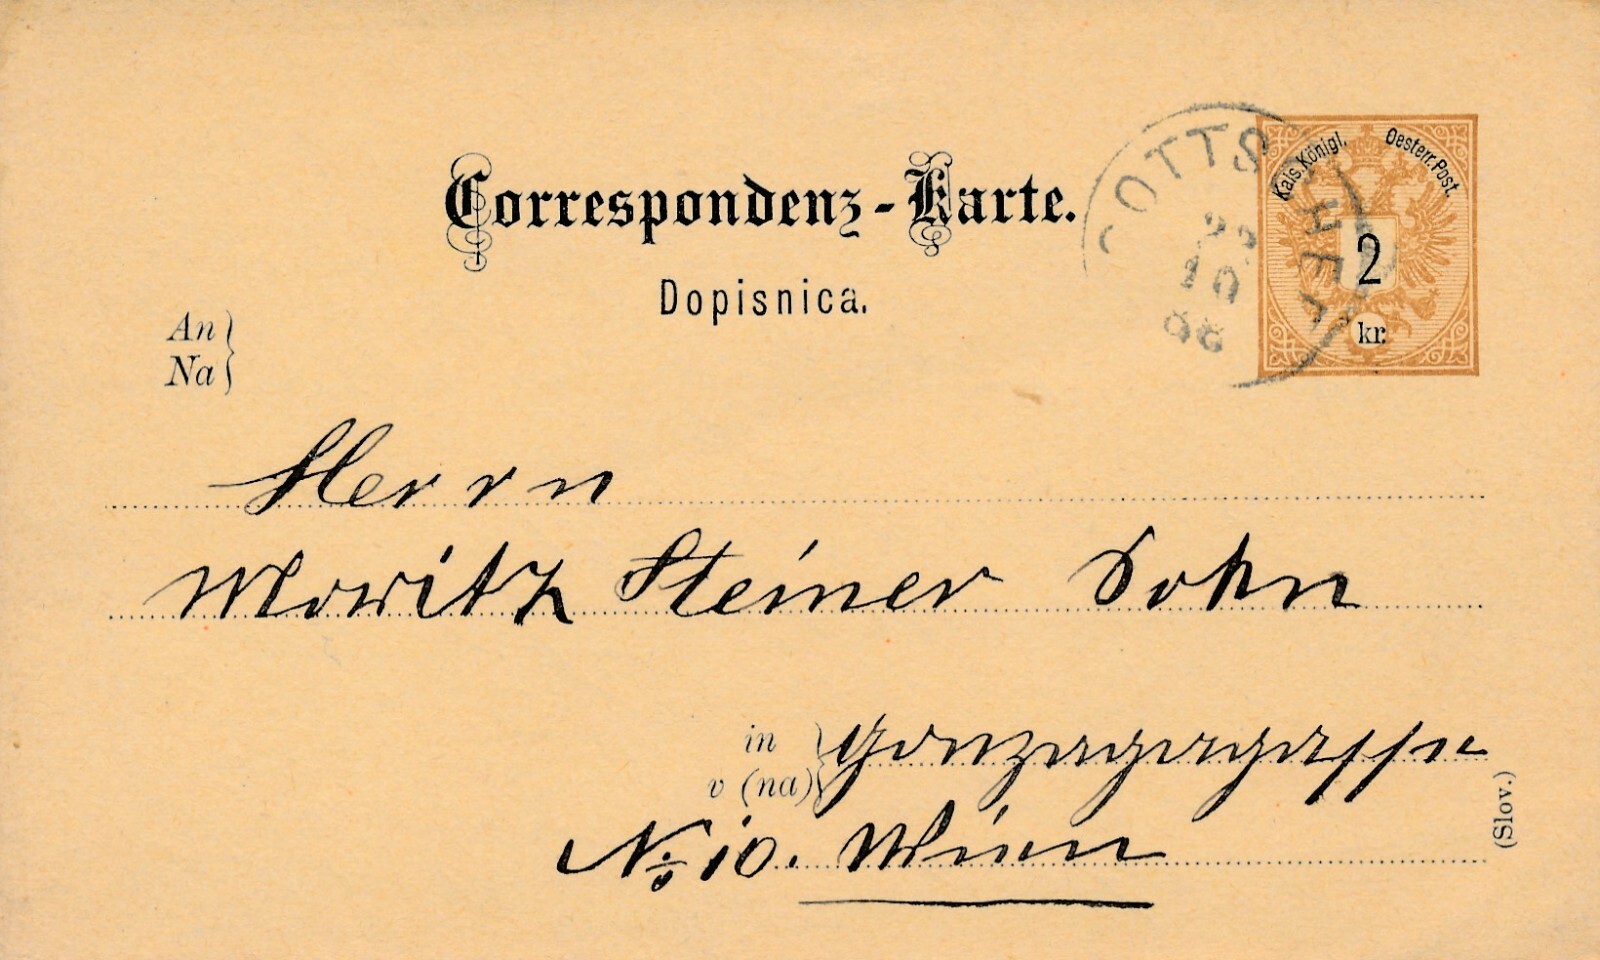 Correspondenz-Karte.
Dopisnica.
Kais. Königl. Oesterr. Post.
2
kr.
OTTSCHEE
10
88
An
Na
Herrn
Moritz Steiner Sohn
in
v (na)
Gonzagagasse
No: 10. Wien
(Slov.)